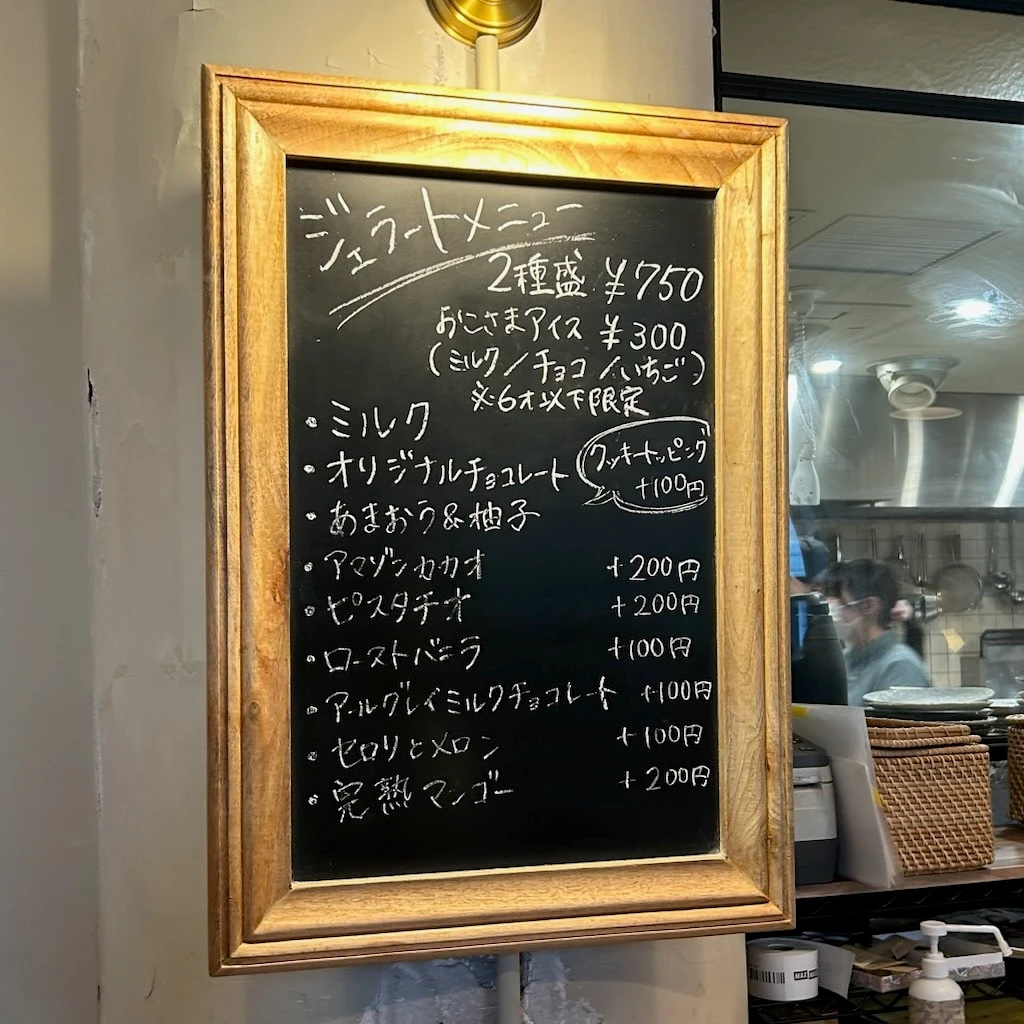 ジェラートメニュー
2種盛 ¥750
おこさまアイス ¥300
(ミルク/チョコ/いちご)
※6才以下限定
・ミルク
・オリジナルチョコレート
クッキートッピング
+100円
・あまおう&柚子
・アマゾンカカオ +200円
・ピスタチオ +200円
・ローストバニラ +100円
・アールグレイミルクチョコレート +100円
・セロリとメロン +100円
・完熟マンゴー +200円
MAX